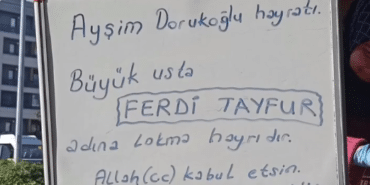 Ayşim Dorukoğlu hayratı.
Büyük usta
FERDİ TAYFUR
adına Lokma hayrıdır.
Allah(cc) kabul etsin.